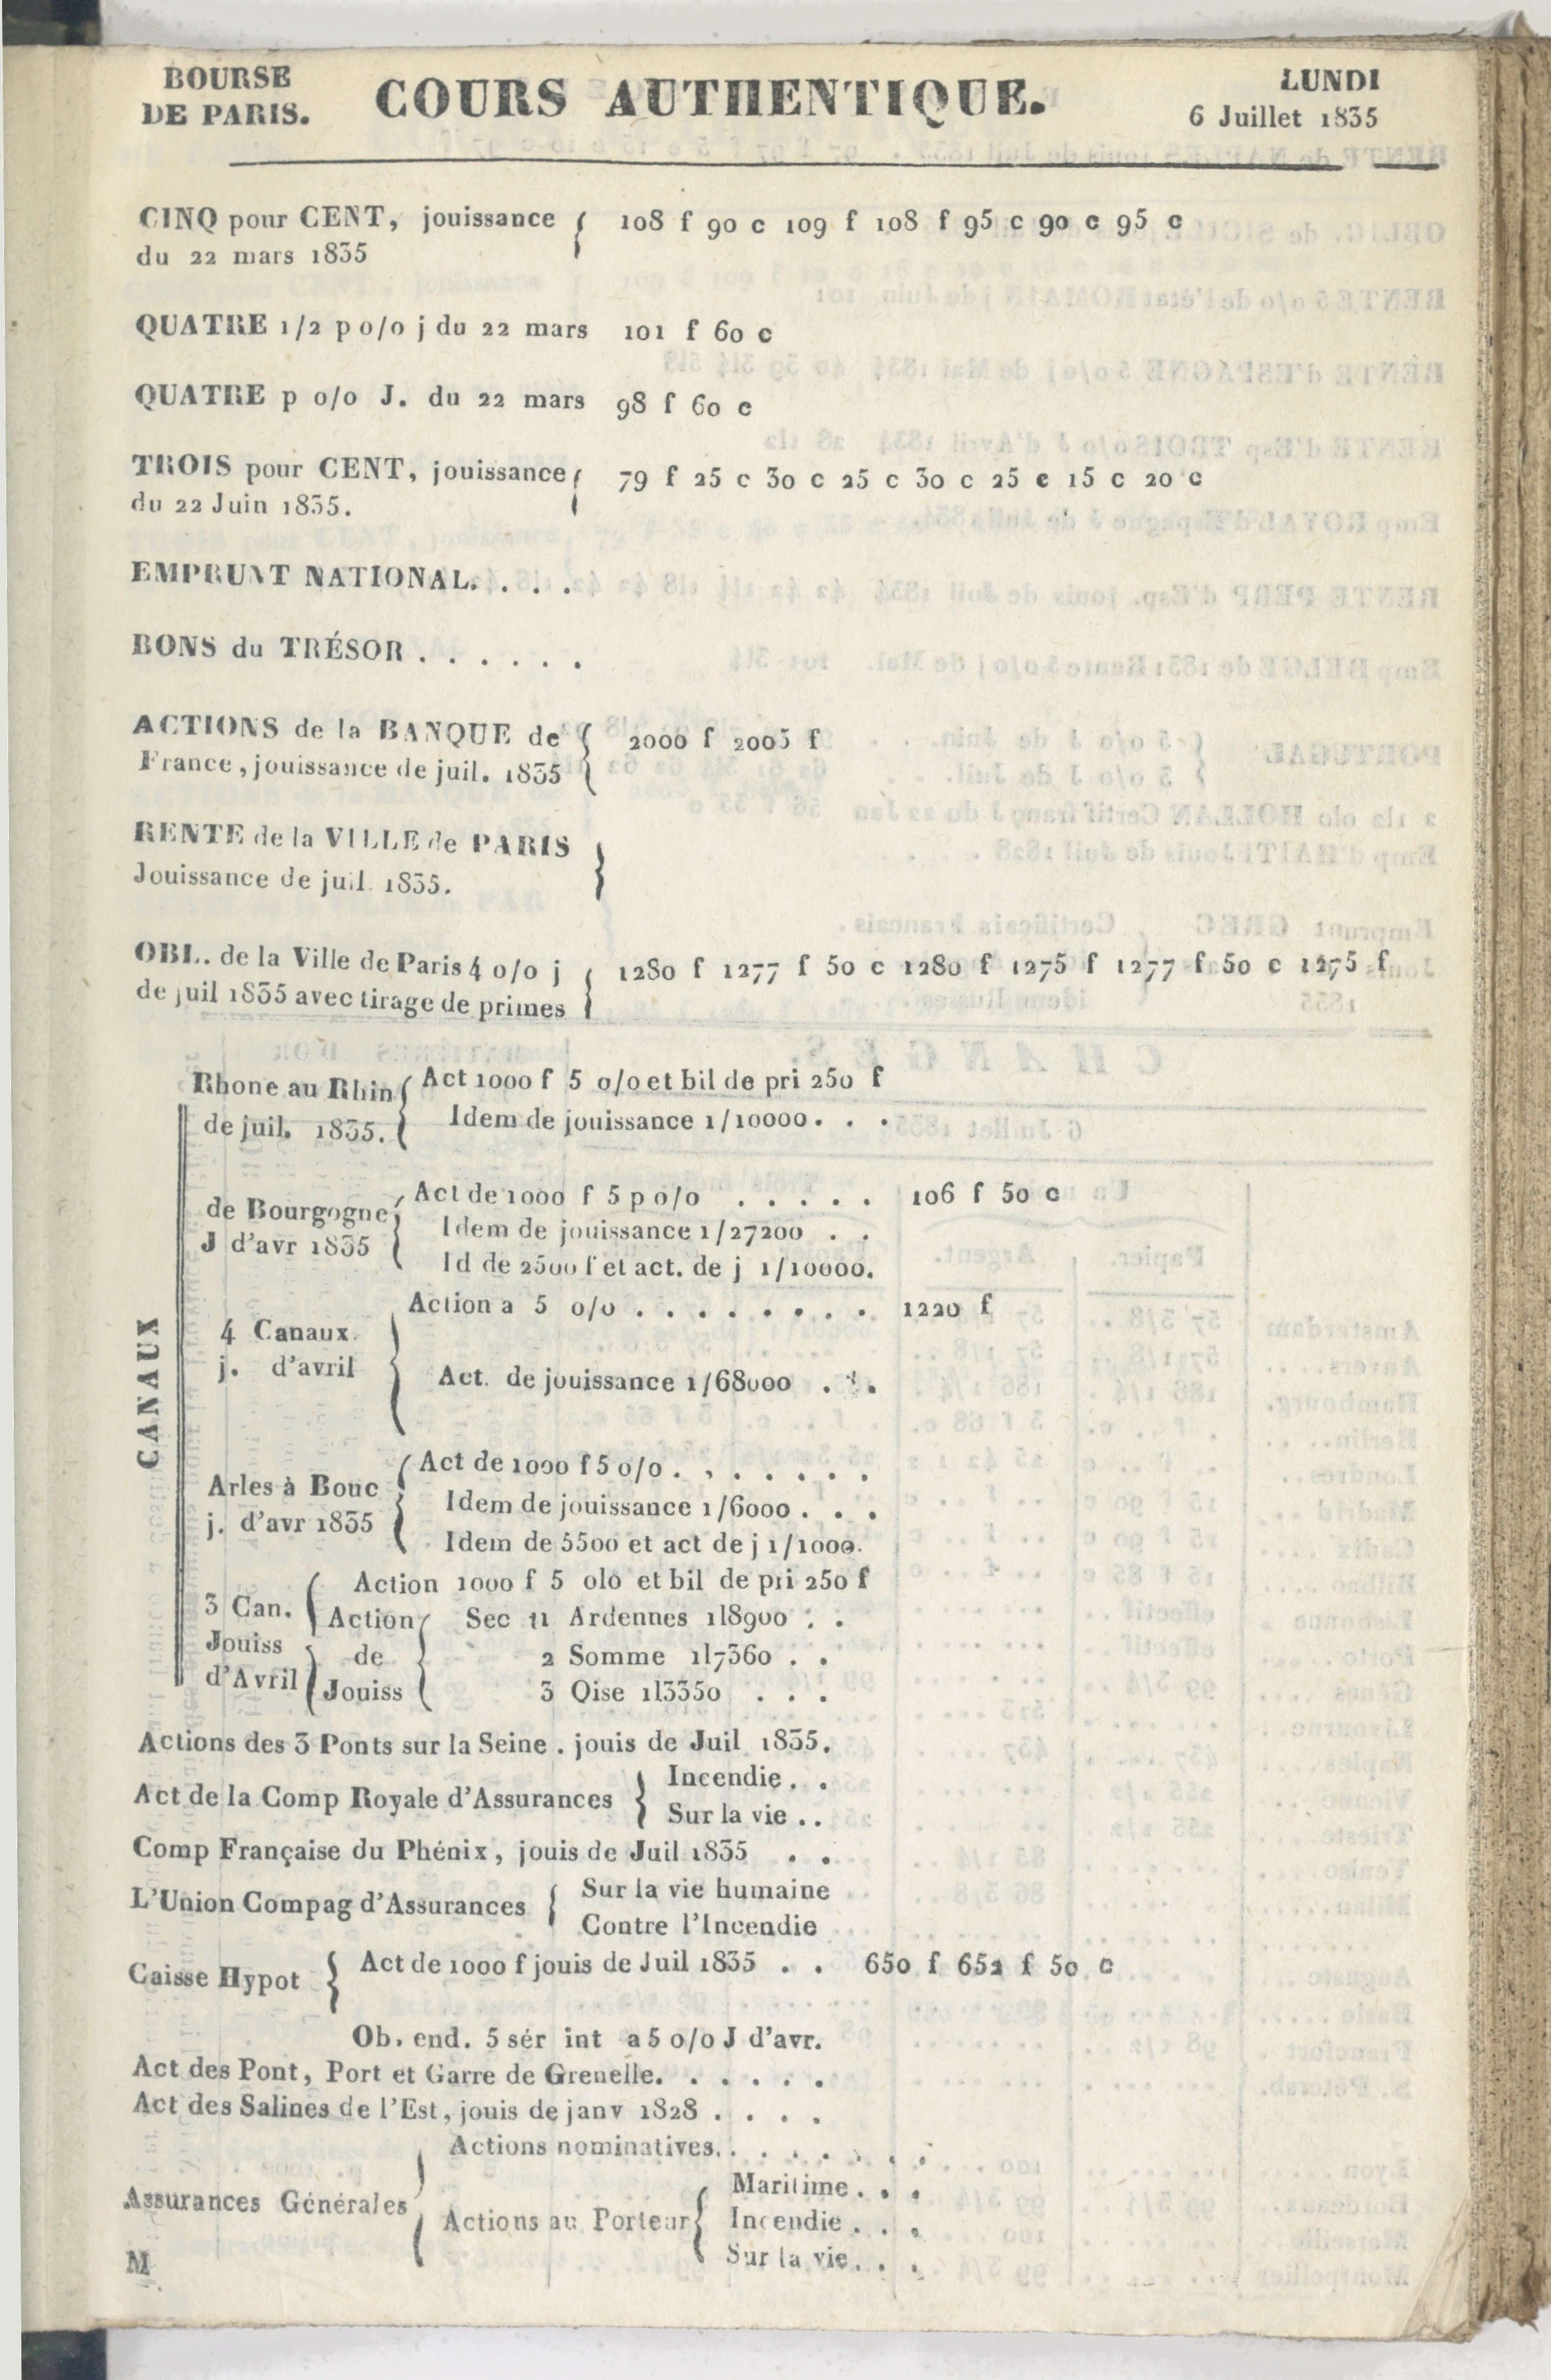 BOURSE
DE PARIS.
COURS AUTHENTIQUE.
LUNDI
6 Juillet 1835
CINQ pour CENT, jouissance { 108 f 90 c 109 f 108 f 95 c 90 c 95 c
du 22 mars 1835
QUATRE 1/2 p o/o j du 22 mars 101 f 60 c
QUATRE p o/o J. du 22 mars 98 f 60 c
TROIS pour CENT, jouissance { 79 f 25 c 30 c 25 c 30 c 25 c 15 c 20 c
du 22 Juin 1835.
EMPRUNT NATIONAL. . . .
BONS du TRÉSOR . . . . . .
ACTIONS de la BANQUE de { 2000 f 2005 f
France, jouissance de juil. 1835
RENTE de la VILLE de PARIS }
Jouissance de juil 1835.
OBL. de la Ville de Paris 4 o/o j { 1280 f 1277 f 50 c 1280 f 1275 f 1277 f 50 c 1275 f
de juil 1835 avec tirage de primes
CANAUX
Rhone au Rhin { Act 1000 f 5 o/o et bil de pri 250 f
de juil. 1835. Idem de jouissance 1/10000. . .
de Bourgogne { Act de 1000 f 5 p o/o . . . . . 106 f 50 c
J d'avr 1835 Idem de jouissance 1/27200 . .
Id de 2500 f et act. de j 1/10000.
4 Canaux { Action a 5 o/o . . . . . . . . 1220 f
j. d'avril Act. de jouissance 1/68000 . . .
Arles à Bouc { Act de 1000 f 5 o/o . . . . . . .
j. d'avr 1835 Idem de jouissance 1/6000 . . .
Idem de 5500 et act de j 1/1000.
3 Can. { Action 1000 f 5 olo et bil de pri 250 f
Jouiss
d'Avril
Action
de
Jouiss
Sec 11 Ardennes 1l8900 . .
2 Somme 1l7360 . .
3 Oise 1l3350 . . .
Actions des 3 Ponts sur la Seine . jouis de Juil 1835.
Act de la Comp Royale d'Assurances { Incendie . .
Sur la vie . .
Comp Française du Phénix, jouis de Juil 1835 . .
L'Union Compag d'Assurances { Sur la vie humaine
Contre l'Incendie
Caisse Hypot { Act de 1000 f jouis de Juil 1835 . . 650 f 652 f 50 c
Ob. end. 5 sér int a 5 o/o J d'avr.
Act des Pont, Port et Garre de Grenelle. . . . . .
Act des Salines de l'Est, jouis de janv 1828 . . . .
Assurances Générales { Actions nominatives. . . . . . . .
Actions au Porteur { Maritime . . .
Incendie . . .
Sur la vie. . .
M